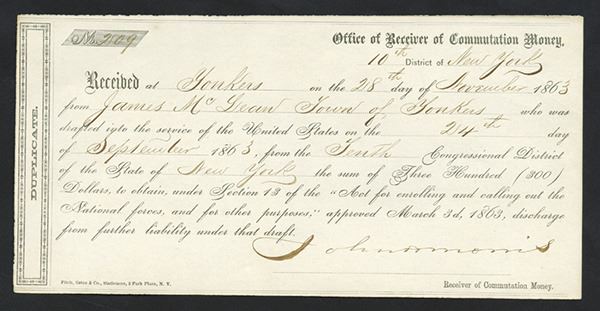 No. 209
Office of Receiver of Commutation Money,
10th District of New York
Received at Yonkers on the 28th day of November 1863
from James McLean Town of Yonkers who was
drafted into the service of the United States on the 24th day
of September 1863, from the Tenth Congressional District
of the State of New York the sum of Three Hundred (300)
Dollars, to obtain, under Section 13 of the "Act for enrolling and calling out the
National forces, and for other purposes," approved March 3d, 1863, discharge
from further liability under that draft.
John
Fitch, Estee & Co., Stationers, 3 Park Place, N. Y.
Receiver of Commutation Money.
DUPLICATE.